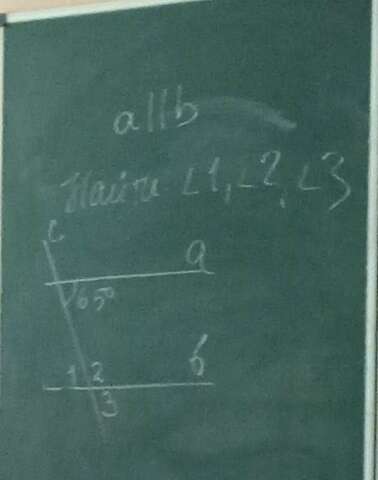 a||b
Найти ∠1, ∠2, ∠3
c
a
65°
b
1 2
3